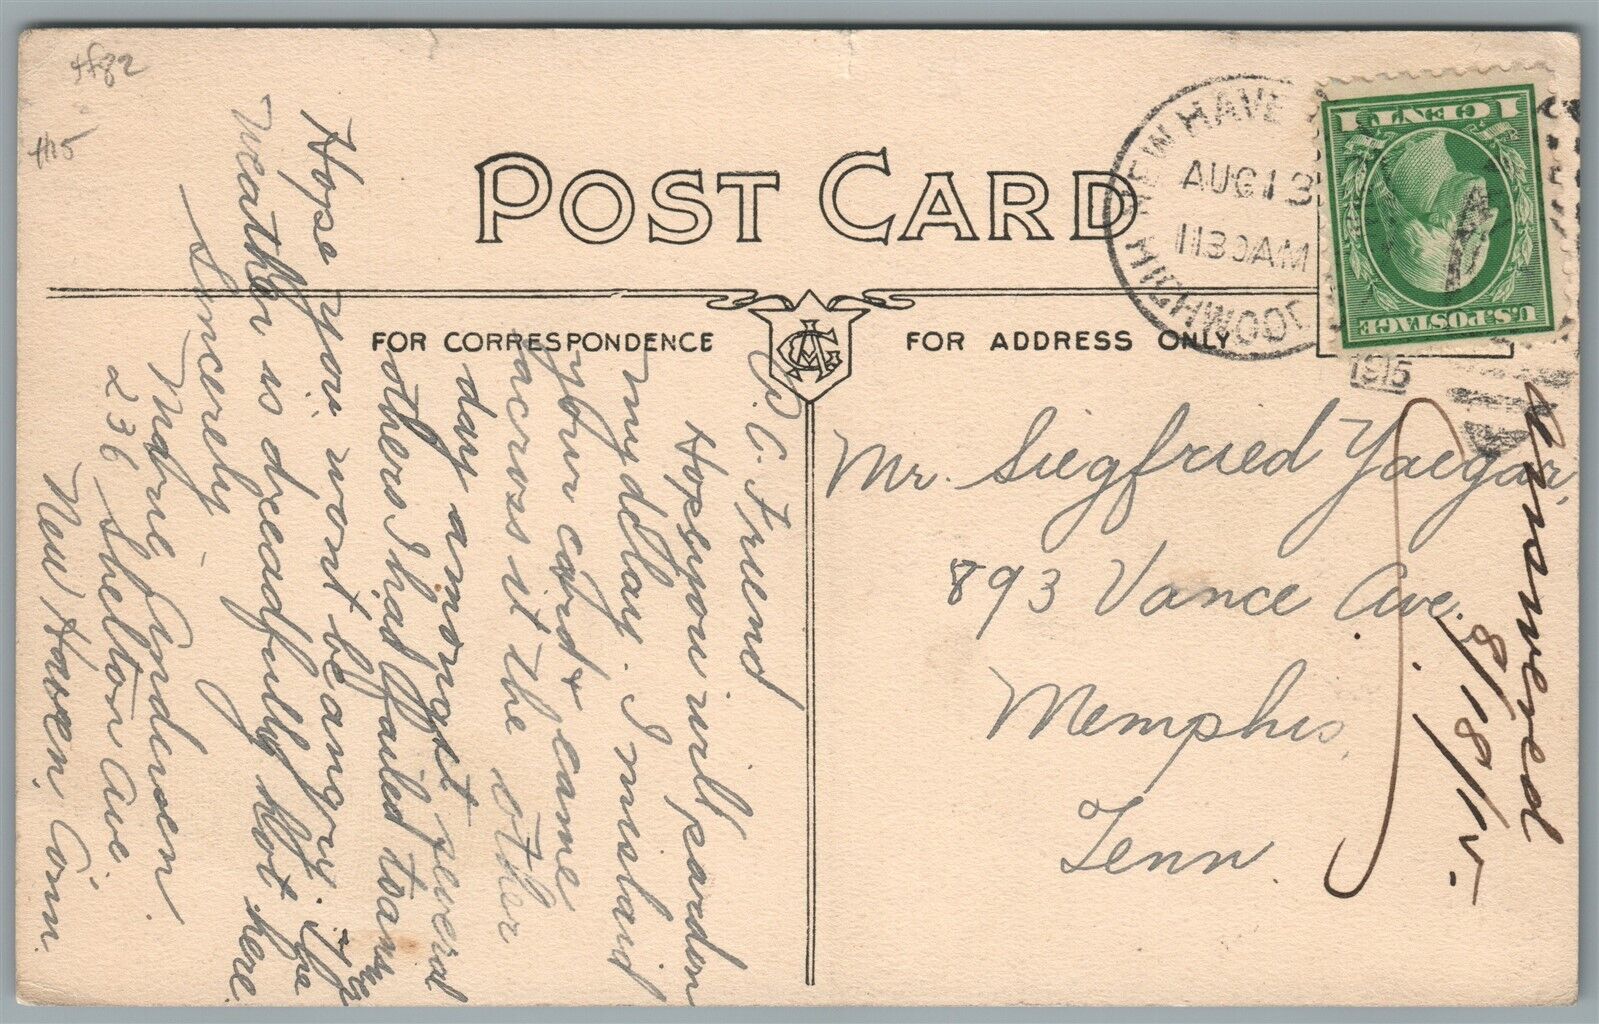 #82
#15
POST CARD
NEW HAVE
AUG 13
1130 AM
1915
1 CENT 1
U.S. POSTAGE
FOR CORRESPONDENCE
FOR ADDRESS ONLY
P. C. Friend
Hope you will pardon
my delay. I mislaid
your card & came
across it the other
day amongst several
others I had failed to answer
Hope you wont be angry. The
weather is dreadfully hot here.
Sincerely -
Anderson
236 Shelton Ave
New Haven, Conn.
Mr. Siegfried Yaegar,
893 Vance Ave.,
Memphis,
Tenn.
Answered
8/18/15-